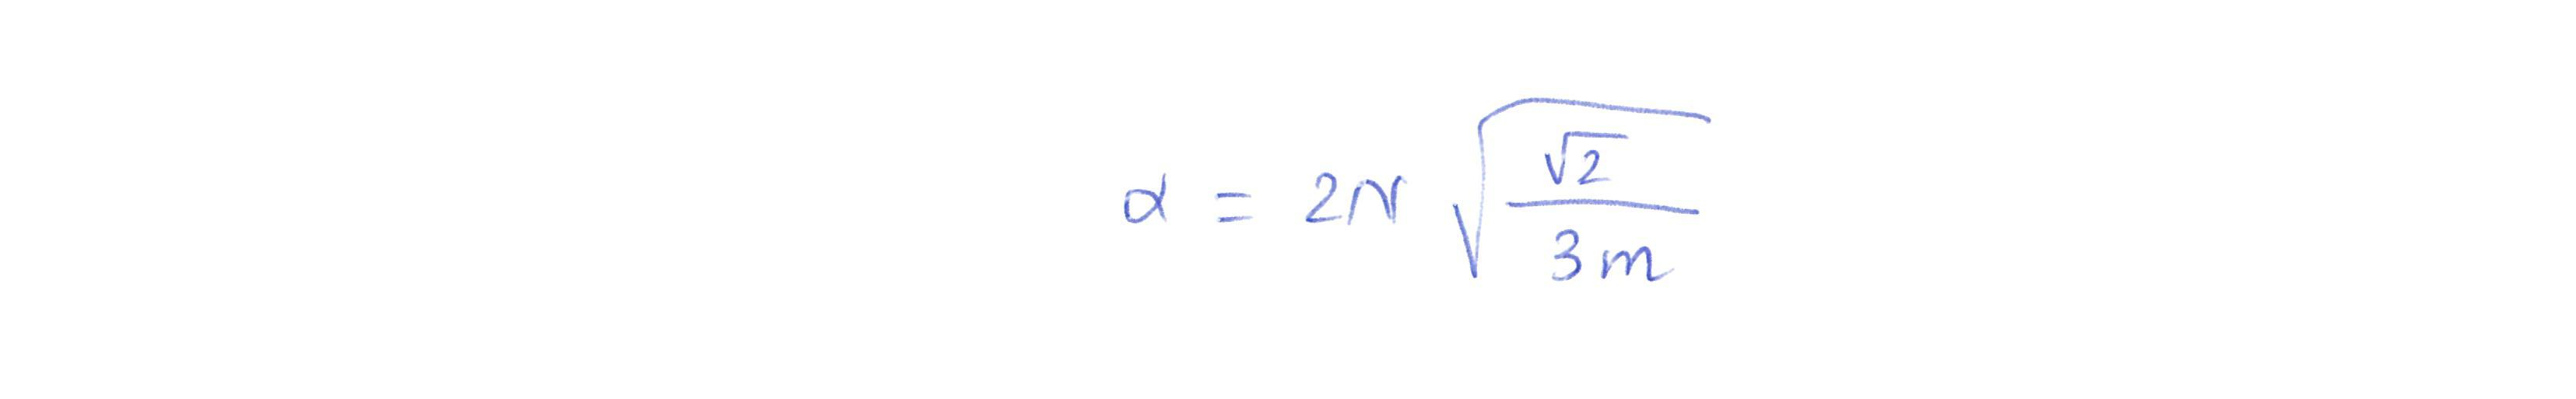 α = 2N √(√2 / 3m)